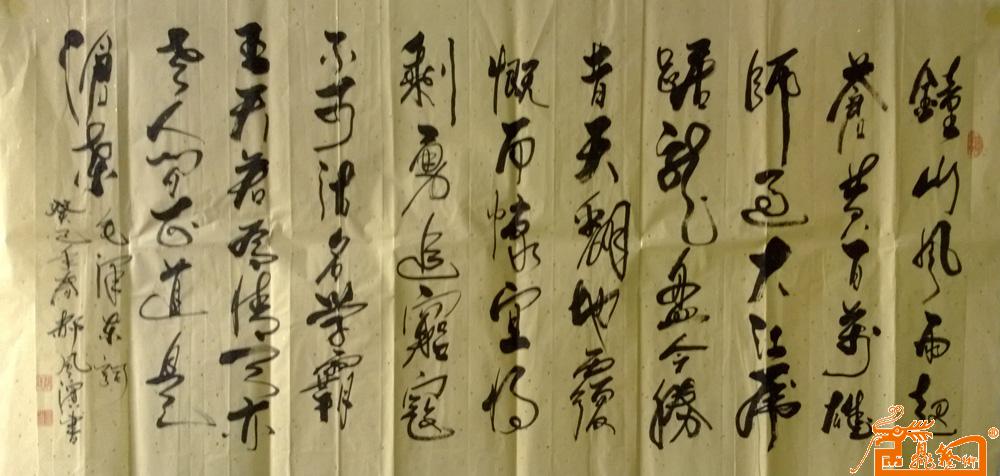 鐘山風雨起
蒼黄百萬雄
師過大江虎
踞龍盘今勝
昔天翻地覆
慨而慷宜将
剩勇追窮寇
不可沽名學霸
王天若有情天亦
老人間正道是
滄桑 毛澤東詞
癸巳年 郝風書